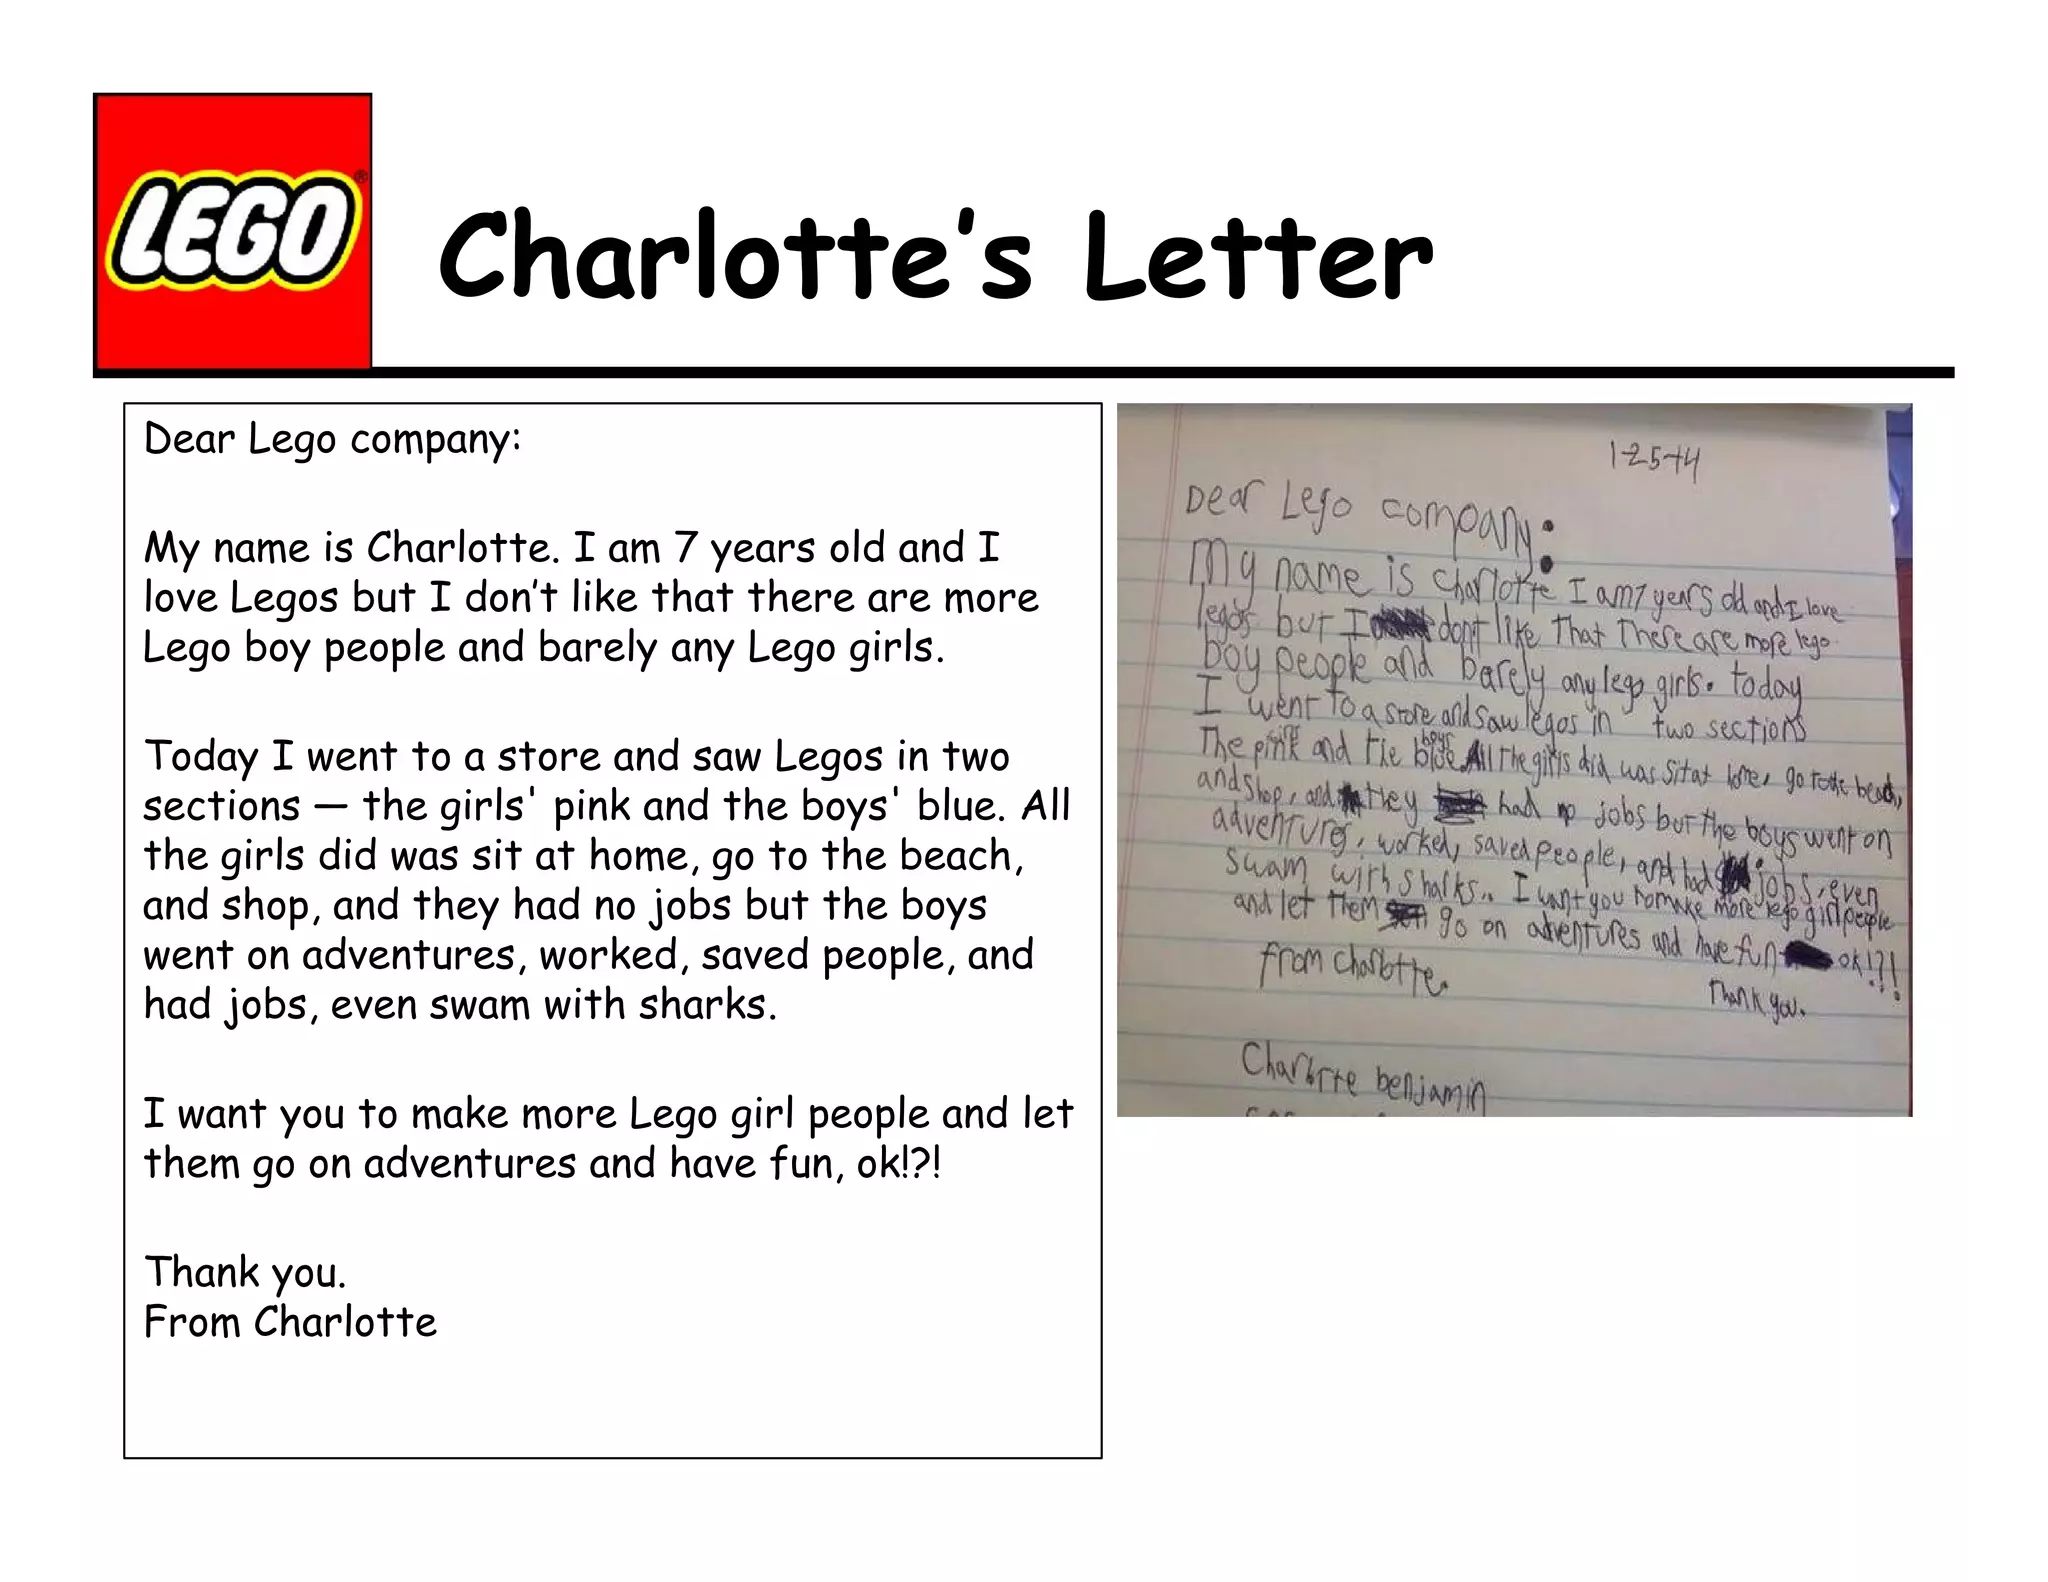 LEGO®
Charlotte’s Letter
Dear Lego company:
My name is Charlotte. I am 7 years old and I
love Legos but I don’t like that there are more
Lego boy people and barely any Lego girls.
Today I went to a store and saw Legos in two
sections — the girls' pink and the boys' blue. All
the girls did was sit at home, go to the beach,
and shop, and they had no jobs but the boys
went on adventures, worked, saved people, and
had jobs, even swam with sharks.
I want you to make more Lego girl people and let
them go on adventures and have fun, ok!?!
Thank you.
From Charlotte
1-25-14
Dear Lego company:
My name is Charlotte I am 7 years old and I love
legos but I don't like That There are more lego
boy people and barely any lego girls. today
I went to a store and saw legos in two sections
girls boys
The pink and the blue. All The girls did was sit at home, go to the beach,
and shop, and they had no jobs but the boys went on
adventures, worked, saved people, and had jobs, even
swam with sharks.. I want you to make more lego girl people
and let them go on adventures and have fun ok!?!
from Charlotte.
Thank you.
Charlotte benjamin